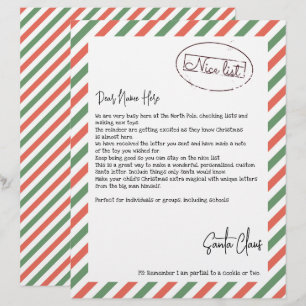 Nice list
Dear Name Here
We are very busy here at the North Pole, checking lists and
making new toys
The reindeer are getting excited as they know Christmas
is almost here.
We have received the letter you sent and have made a note
of the toy you wished for
Keep being good so you can stay on the nice list
This is a great way to make a wonderful, personalized, custom
Santa letter. Include things only santa would know.
Make your child's Christmas extra magical with unique letters
from the big man himself.
Perfect for individuals or groups, including schools
Santa Claus
PS: Remember I am partial to a cookie or two.